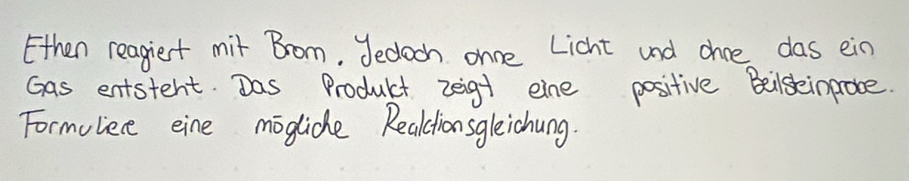 Ethen reagiert mit Brom. Jedoch ohne Licht und ohne das ein
Gas entsteht. Das Produkt zeigt eine positive Beilsteinprobe.
Formuliere eine mögliche Reaktionsgleichung.